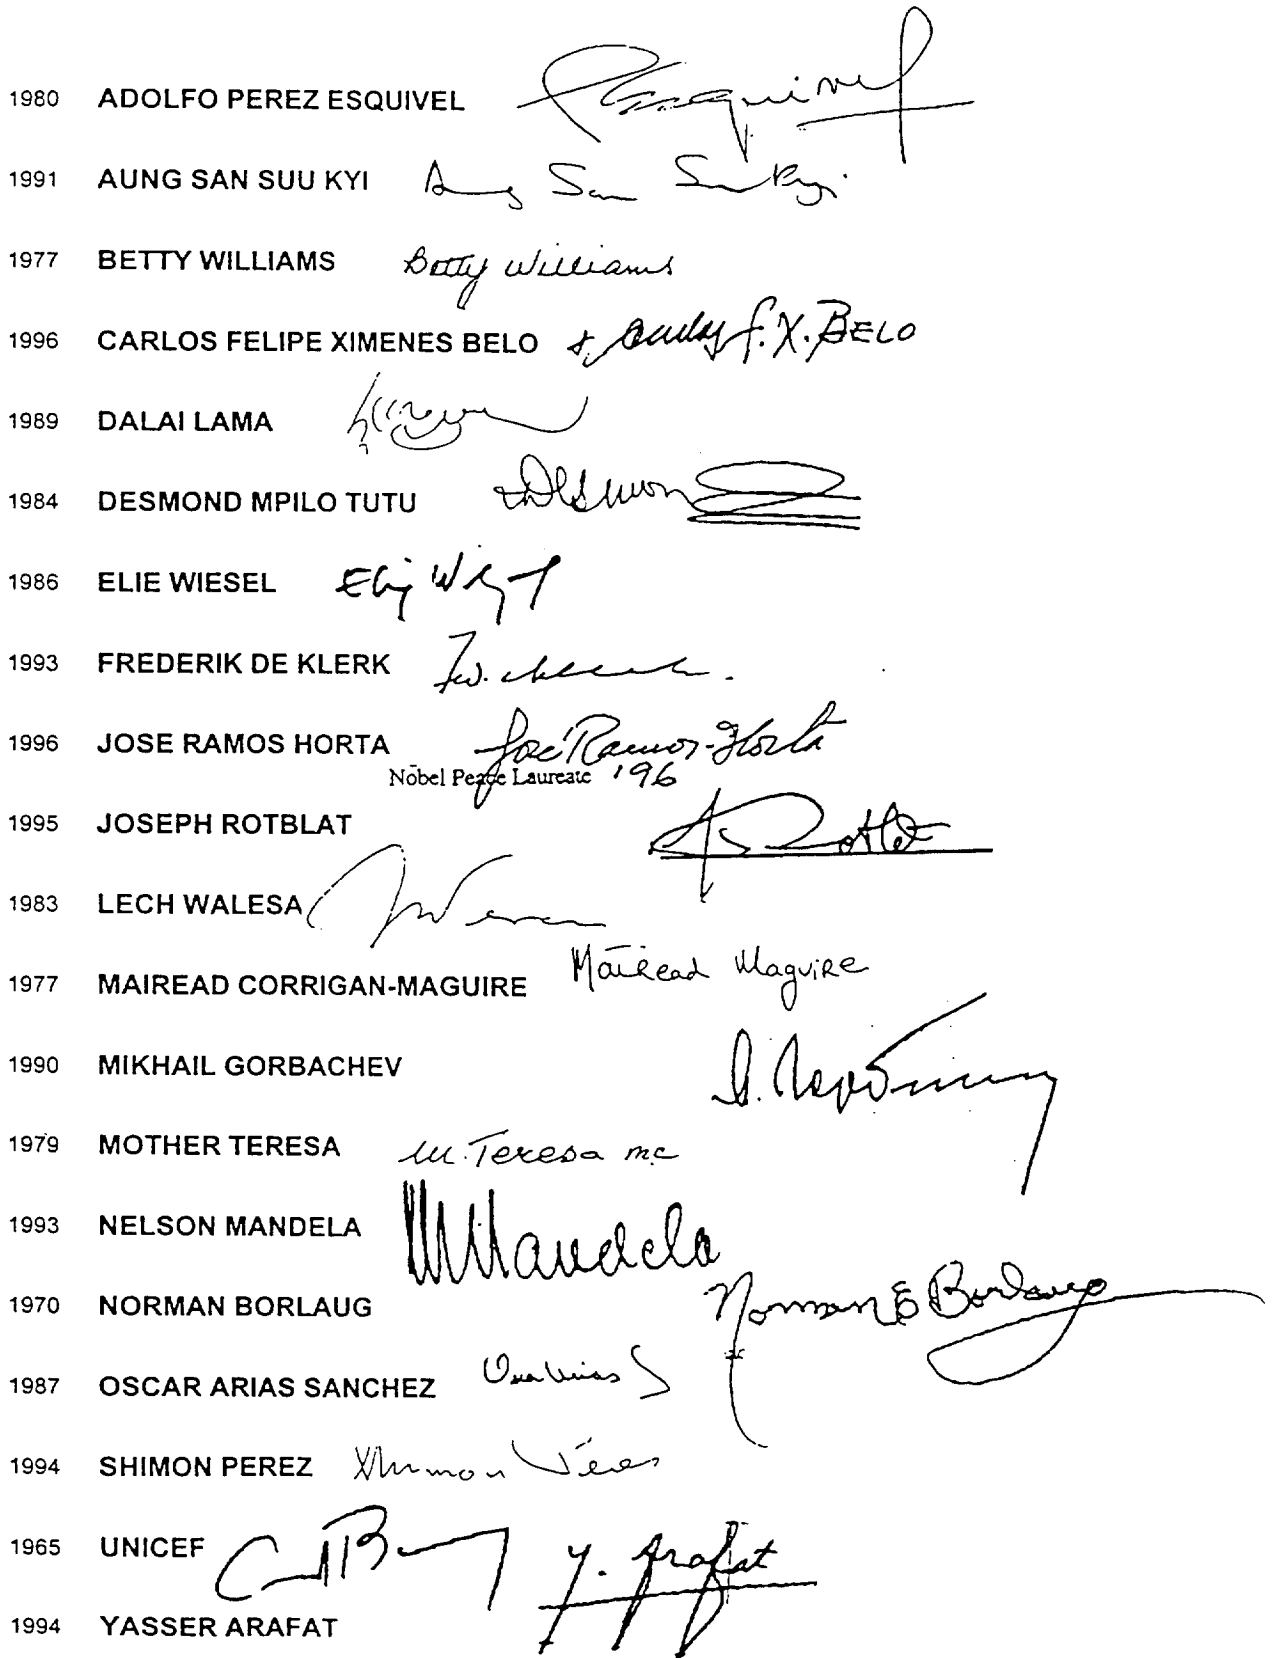 1980 ADOLFO PEREZ ESQUIVEL
1991 AUNG SAN SUU KYI Aung San Suu Kyi
1977 BETTY WILLIAMS Betty Williams
1996 CARLOS FELIPE XIMENES BELO + Carlos F. X. BELO
1989 DALAI LAMA
1984 DESMOND MPILO TUTU + Desmon
1986 ELIE WIESEL
1993 FREDERIK DE KLERK F.W. de Klerk.
1996 JOSE RAMOS HORTA José Ramos-Horta
Nobel Peace Laureate '96
1995 JOSEPH ROTBLAT J Rotblat
1983 LECH WALESA
1977 MAIREAD CORRIGAN-MAGUIRE Mairead Maguire
1990 MIKHAIL GORBACHEV
1979 MOTHER TERESA M. Teresa mc
1993 NELSON MANDELA Mandela
1970 NORMAN BORLAUG Norman E Borlaug
1987 OSCAR ARIAS SANCHEZ Oscar Arias S
1994 SHIMON PEREZ Shimon Peres
1965 UNICEF
1994 YASSER ARAFAT Y. Arafat